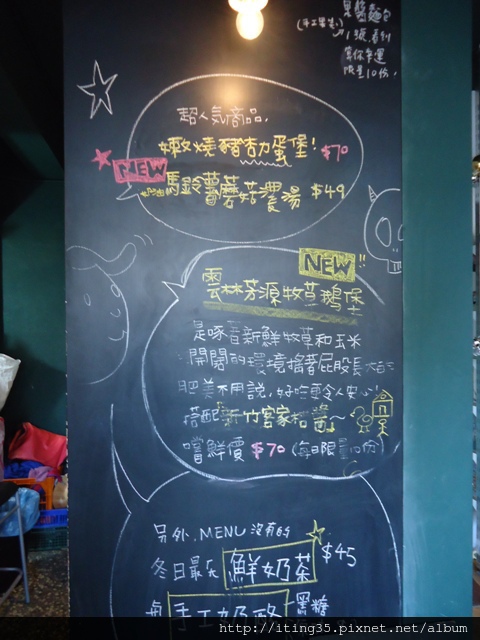 果醬麵包
(手工醬喔)
1號.看到
算你幸運
限量10份,
超人氣商品,
嫩燒豬劝蛋堡! $70
NEW
馬鈴薯蘑菇濃湯 $49
NEW!!
雲林芳源牧草鵝堡
是啄著新鮮牧草和玉米
開闊的環境搖著屁股長大
肥美不用說,好吃更令人安心
搭配新竹客家桔醬~
嚐鮮價 $70 (每日限量10份)
另外,MENU沒有的
冬日最夯 鮮奶茶 $45
手工奶酪 黑糖
http://iting35.pixnet.net/album